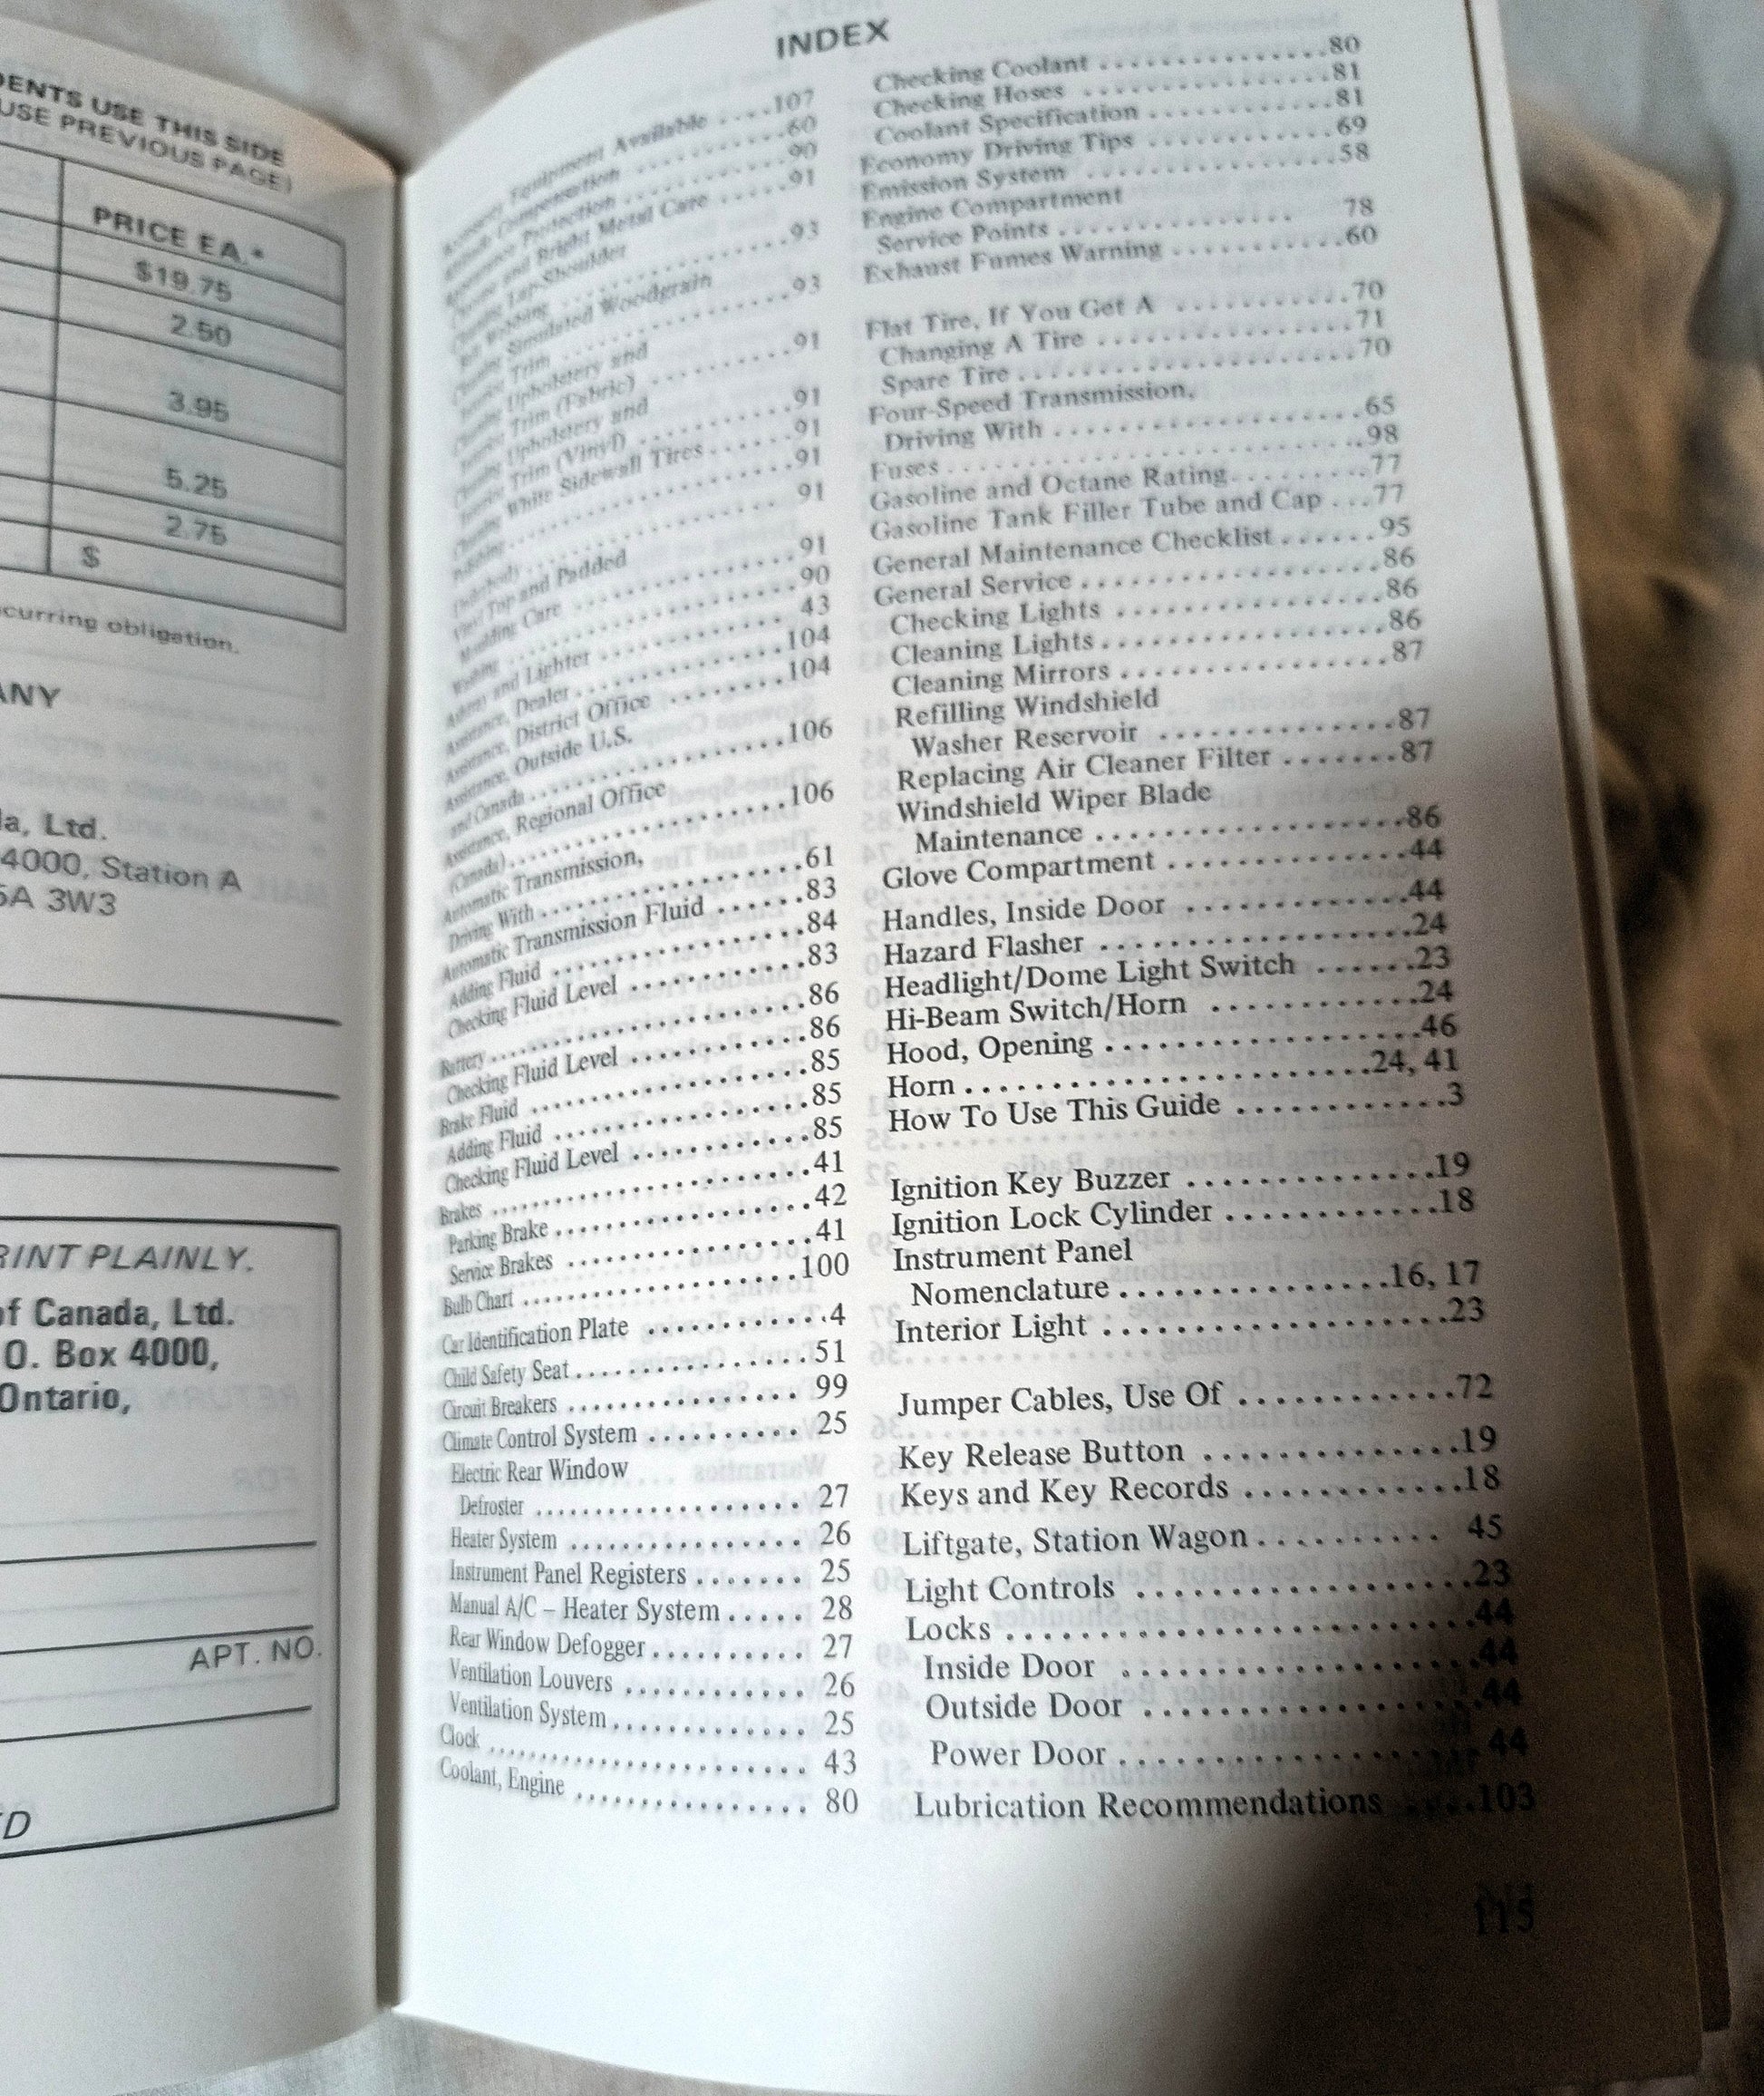 DENTS USE THIS SIDE
USE PREVIOUS PAGE)
PRICE EA.*
$19.75
2.50
3.95
5.25
2.75
$
curring obligation.
ANY
a, Ltd.
4000, Station A
5A 3W3
RINT PLAINLY.
of Canada, Ltd.
O. Box 4000,
Ontario,
APT. NO.
ED
INDEX
Accessory Equipment Available ....107
Altitude Compensation ............60
Appearance Protection ............90
Chrome and Bright Metal Care ......91
Cleaning Lap-Shoulder
Belt Webbing ............93
Cleaning Simulated Woodgrain
Exterior Trim ............93
Cleaning Upholstery and
Interior Trim (Fabric) ..........91
Cleaning Upholstery and
Interior Trim (Vinyl) ...........91
Cleaning White Sidewall Tires ......91
Polishing ....................91
Underbody .................... 91
Vinyl Top and Padded
Moulding Care ................91
Washing ....................90
Ashtray and Lighter ............ 43
Assistance, Dealer .............104
Assistance, District Office ........104
Assistance, Outside U.S.
and Canada ..................106
Assistance, Regional Office
(Canada) ...................106
Automatic Transmission,
Driving With .................61
Automatic Transmission Fluid ......83
Adding Fluid .................84
Checking Fluid Level ...........83
Battery ......................86
Checking Fluid Level ............86
Brake Fluid ...................85
Adding Fluid .................85
Checking Fluid Level ...........85
Brakes .......................41
Parking Brake .................42
Service Brakes ................41
Bulb Chart ...................100
Car Identification Plate ...........4
Child Safety Seat ..............51
Circuit Breakers .............. 99
Climate Control System .......... 25
Electric Rear Window
Defroster .................... 27
Heater System ................ 26
Instrument Panel Registers ....... 25
Manual A/C – Heater System ..... 28
Rear Window Defogger .......... 27
Ventilation Louvers ............ 26
Ventilation System ............. 25
Clock ....................... 43
Coolant, Engine ............... 80
Checking Coolant ..............80
Checking Hoses ................81
Coolant Specification ...........81
Economy Driving Tips ...........69
Emission System ...............58
Engine Compartment
Service Points ............... 78
Exhaust Fumes Warning ..........60
Flat Tire, If You Get A ..........70
Changing A Tire ...............71
Spare Tire ....................70
Four-Speed Transmission,
Driving With ..................65
Fuses ........................98
Gasoline and Octane Rating ........77
Gasoline Tank Filler Tube and Cap ...77
General Maintenance Checklist ......95
General Service ................86
Checking Lights ...............86
Cleaning Lights ................86
Cleaning Mirrors ...............87
Refilling Windshield
Washer Reservoir ..............87
Replacing Air Cleaner Filter .......87
Windshield Wiper Blade
Maintenance ..................86
Glove Compartment .............44
Handles, Inside Door ............44
Hazard Flasher .................24
Headlight/Dome Light Switch ......23
Hi-Beam Switch/Horn ...........24
Hood, Opening .................46
Horn .......................24, 41
How To Use This Guide ...........3
Ignition Key Buzzer .............19
Ignition Lock Cylinder ...........18
Instrument Panel
Nomenclature ...............16, 17
Interior Light ..................23
Jumper Cables, Use Of ...........72
Key Release Button .............19
Keys and Key Records ...........18
Liftgate, Station Wagon .......... 45
Light Controls .................23
Locks .......................44
Inside Door ..................44
Outside Door .................44
Power Door ..................44
Lubrication Recommendations ....103
115